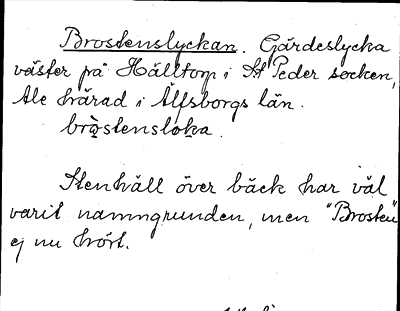 Brostenslyckan. Gärdeslycka
väster på Hälltorp i St Peder socken,
Ale härad i Älfsborgs län.
bròstensloka.
Stenhäll över bäck har väl
varit namngrunden, men "Brosten"
ej nu hört.